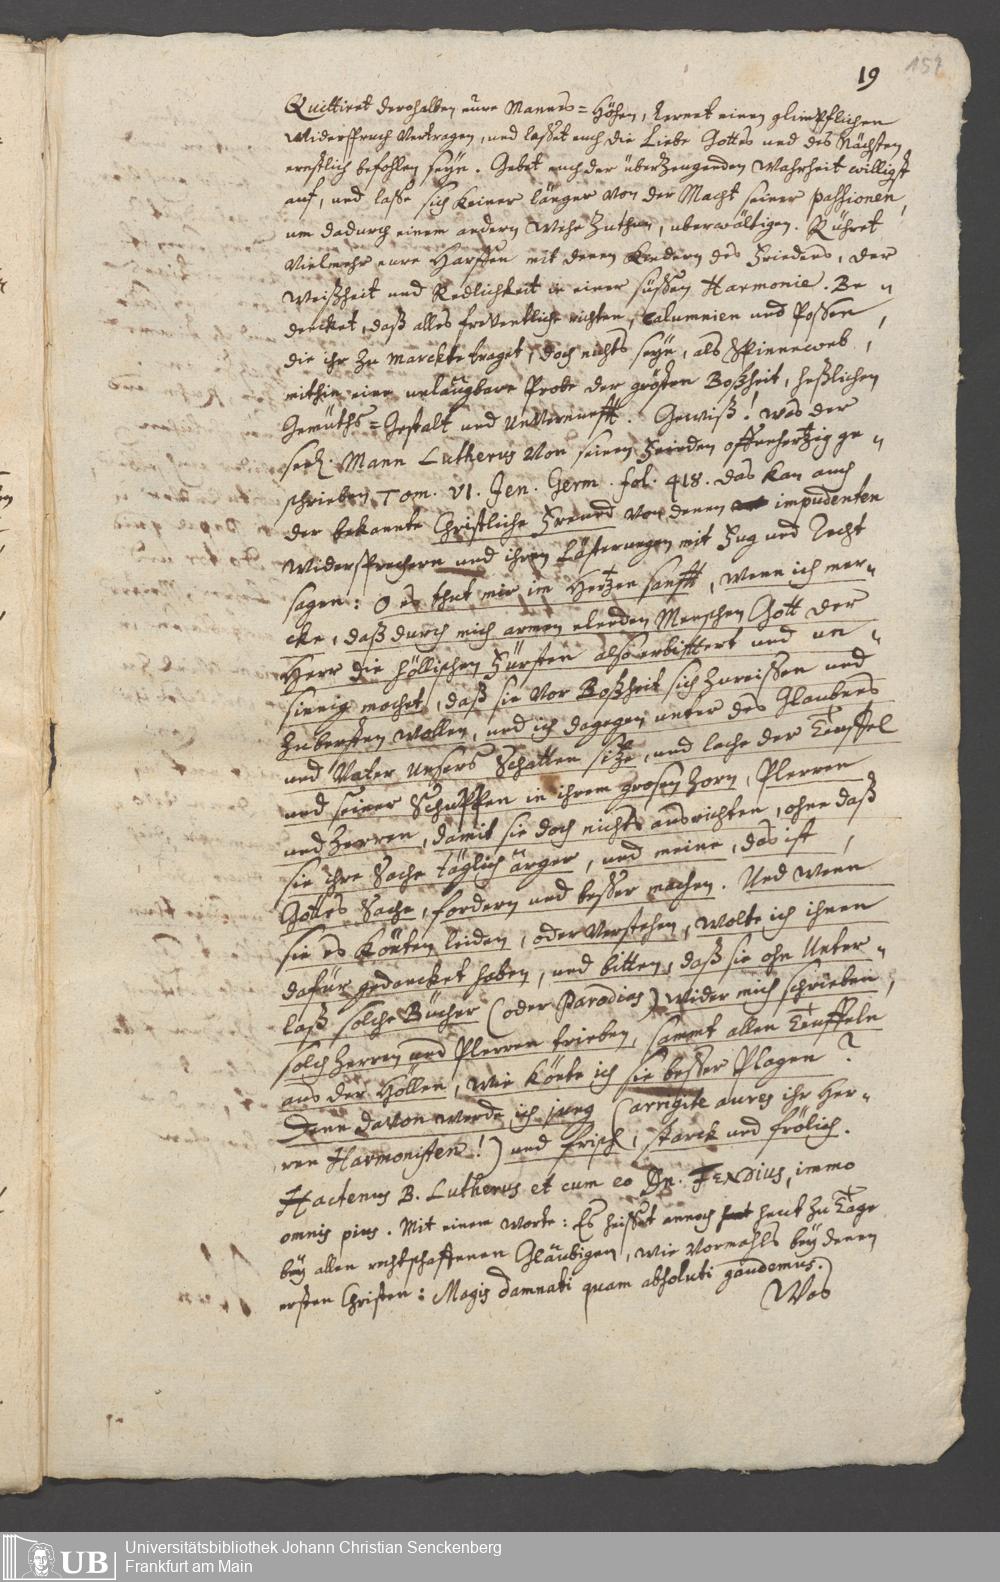 19
159
Quittiret derohalben eure Mannes=Höhen, lernet einen glimpflichen
Widerspruch Vertragen, und lasset euch die Liebe Gottes und des Nächsten
ernstlich befohlen seyn. Gebet euch der überzeugenden Wahrheit willigst
auf, und lasse sich keiner länger von der Macht seiner passionen,
um dadurch einem andern Wehe zuthun, uberwältigen. Rühret
Vielmehr eure Harffen mit denen Kindern des Friedens, der
Weißheit und Redlichkeit in einer süssen Harmonie. Be=
dencket, daß alles freventliche richten, Calumnien und Possen,
die ihr zu marckte traget, doch nichts seyn, als Spinneweb,
mithin eine unlaugbare Probe der grösten Boßheit, heßlichen
Gemüths=Gestalt und UnVernunfft. Gewiß! was der
seel. Mann Lutherus Von seinen Feinden offenhertzig ge=
schrieben Tom. VI. Jen. Germ. fol. 418. das kan auch
der bekannte Christliche Freund von denen impudenten
Widersprechern und ihren Lästerungen mit Fug und Recht
sagen: O es thut mir im Hertzen sanfft, wenn ich mer=
cke, daß durch mich armen elenden Menschen Gott der
Herr die höllischen Fürsten also erbittert und un=
sinnig machet, daß sie Vor Boßheit sich zureissen und
zubersten wollen, und ich dagegen unter des Glaubens
und Vater Unsers Schatten sitze, und lache der Teuffel
und seiner Schuppen in ihrem grosen Zorn, Plerren
und Zerren, damit sie doch nichts ausrichten, ohne daß
sie ihre Sache täglich ärger, und meine, das ist,
Gottes Sache, fordern und besser machen. Und wenn
sie es könten leiden, oder Verstehen, wolte ich ihnen
dafür gedancket haben, und bitten, daß sie ohn Unter=
laß solche Bücher (oder Parodias) wider mich schrieben,
solch Zerren und Plerren trieben, sammt allen Teuffeln
aus der Höllen, wie könte ich sie besser Plagen?
Denn davon werde ich jung (arrigite aures ihr Her=
ren Harmonisten!) und frisch, starck und frölich.
Hactenus B. Lutherus et cum eo Dn. FENDius, immo
omnis pius. Mit einem Worte: Es heisset annoch heut zu Tage
bey allen rechtschaffenen Gläubigen, wie Vormahls bey denen
ersten Christen: Magis damnati quam absoluti gaudemus.
Was
UB
Universitätsbibliothek Johann Christian Senckenberg
Frankfurt am Main